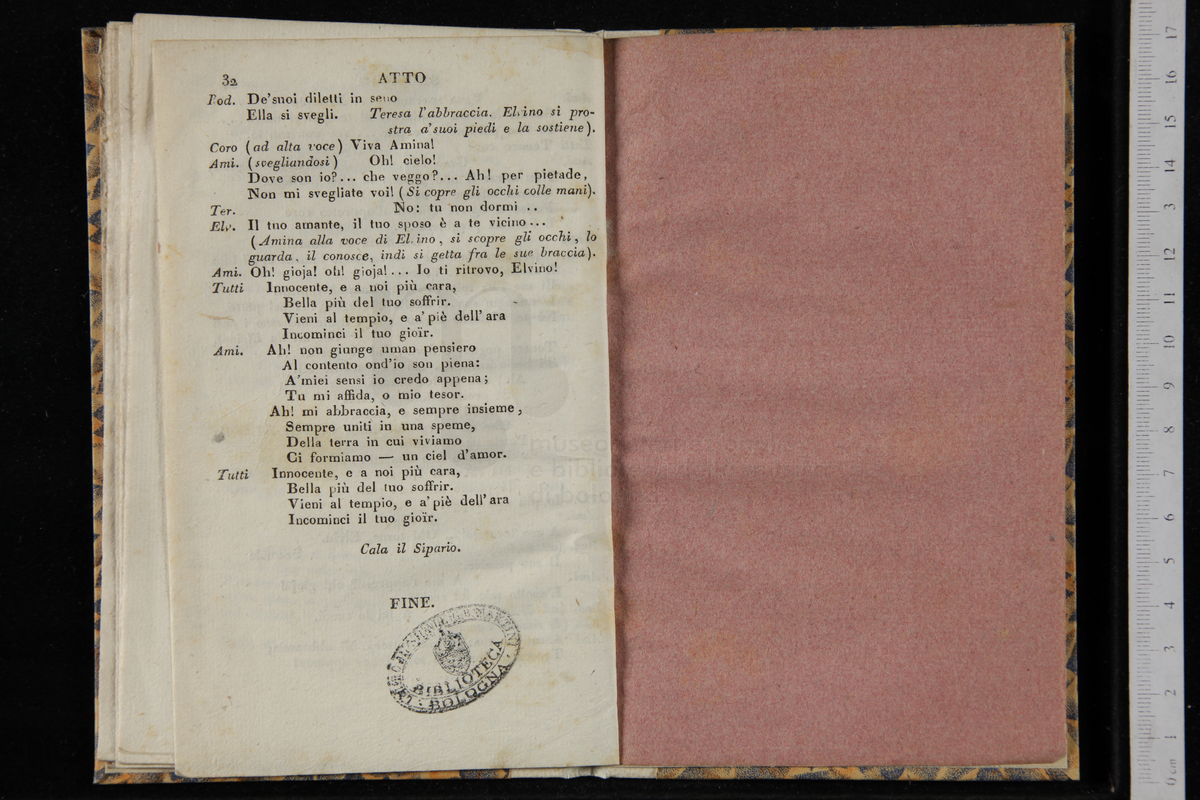 32 ATTO
Rod. De'suoi diletti in seno
Ella si svegli. Teresa l'abbraccia. Elvino si pro-
stra a'suoi piedi e la sostiene).
Coro (ad alta voce) Viva Amina!
Ami. (svegliandosi) Oh! cielo!
Dove son io?... che veggo?... Ah! per pietade,
Non mi svegliate voi! (Si copre gli occhi colle mani).
Ter. No: tu non dormi ..
Elv. Il tuo amante, il tuo sposo è a te vicino...
(Amina alla voce di Elvino, si scopre gli occhi, lo
guarda, il conosce, indi si getta fra le sue braccia).
Ami. Oh! gioja! oh! gioja!... Io ti ritrovo, Elvino!
Tutti Innocente, e a noi più cara,
Bella più del tuo soffrir.
Vieni al tempio, e a'piè dell'ara
Incominci il tuo gioïr.
Ami. Ah! non giunge uman pensiero
Al contento ond'io son piena:
A'miei sensi io credo appena;
Tu mi affida, o mio tesor.
Ah! mi abbraccia, e sempre insieme,
Sempre uniti in una speme,
Della terra in cui viviamo
Ci formiamo — un ciel d'amor.
Tutti Innocente, e a noi più cara,
Bella più del tuo soffrir.
Vieni al tempio, e a'piè dell'ara
Incominci il tuo gioïr.
Cala il Sipario.
FINE.
G. B. MARTINI
BIBLIOTECA
BOLOGNA
museo
e biblio
di bologna
17
16
15
14
3
12
11
10
9
8
7
6
5
4
3
2
1
0 cm